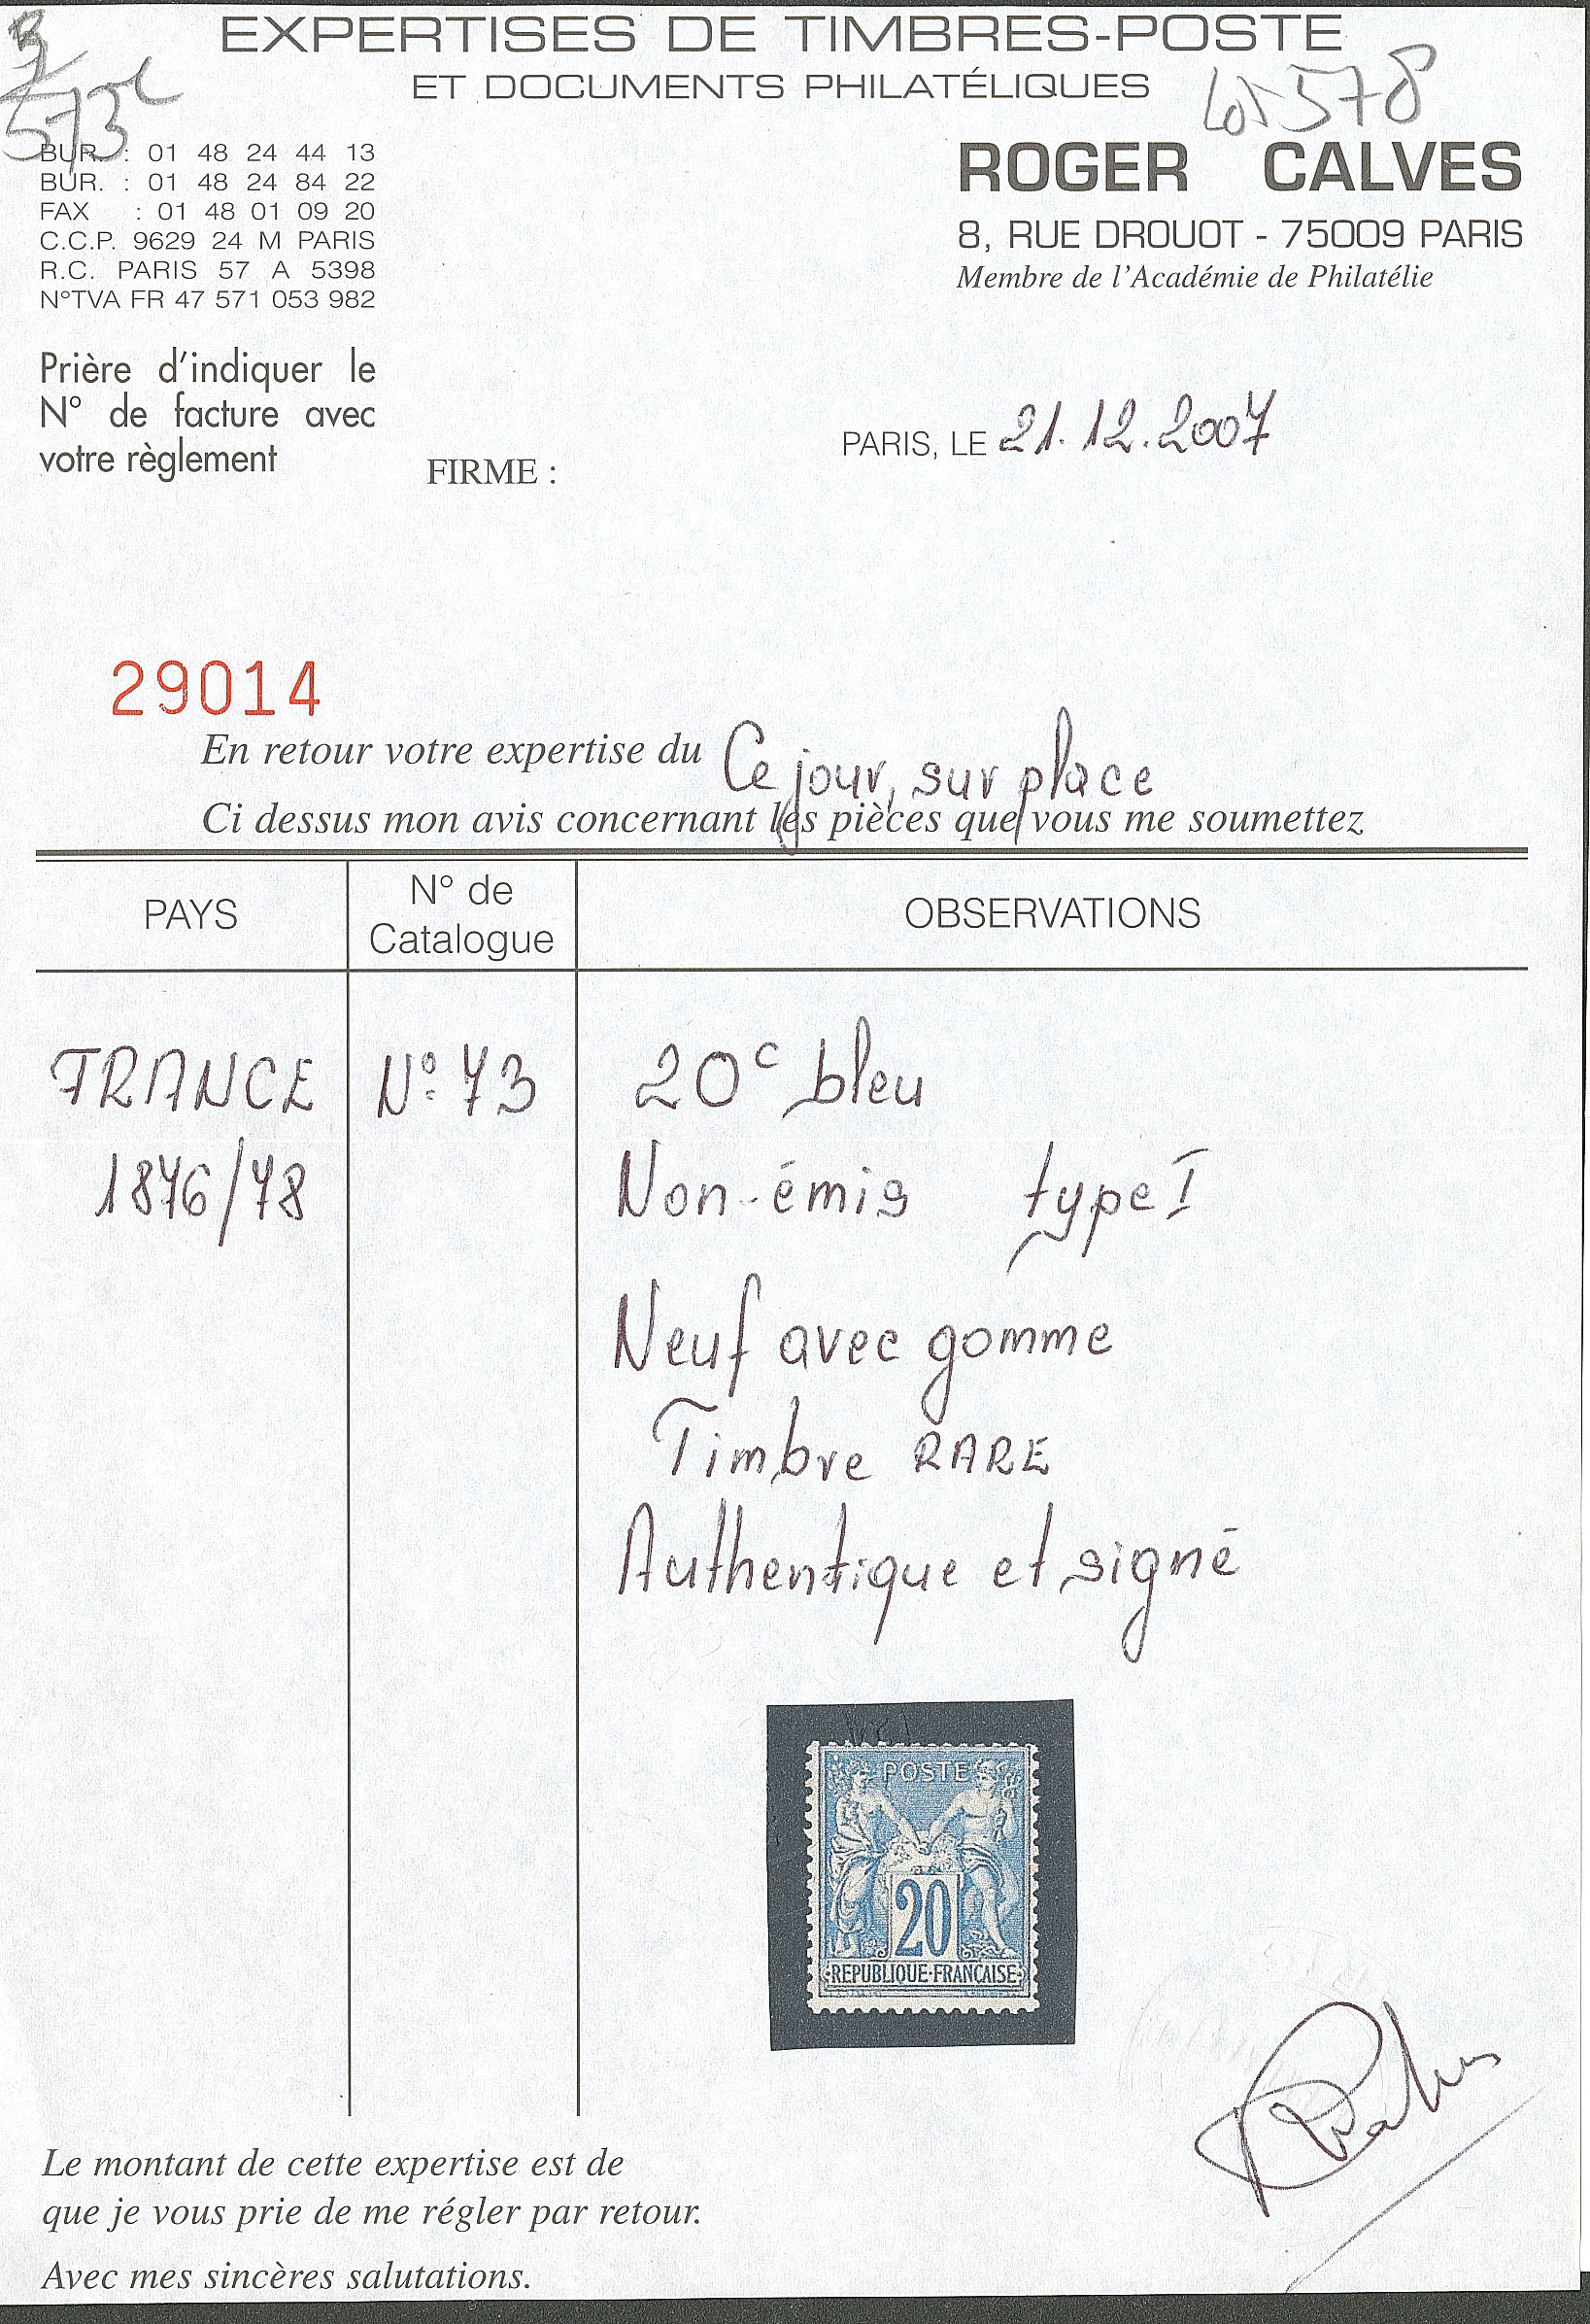 EXPERTISES DE TIMBRES-POSTE
ET DOCUMENTS PHILATÉLIQUES
573
Lot 578
BUR. : 01 48 24 44 13
BUR. : 01 48 24 84 22
FAX : 01 48 01 09 20
C.C.P. 9629 24 M PARIS
R.C. PARIS 57 A 5398
N°TVA FR 47 571 053 982
ROGER CALVES
8, RUE DROUOT - 75009 PARIS
Membre de l'Académie de Philatélie
Prière d'indiquer le
N° de facture avec
votre règlement
FIRME :
PARIS, LE 21.12.2007
29014
En retour votre expertise du Ce jour, sur place
Ci dessus mon avis concernant les pièces que vous me soumettez
PAYS
N° de
Catalogue
OBSERVATIONS
FRANCE
1876/78
N° 73
20c bleu
Non-émis type I
Neuf avec gomme
Timbre RARE
Authentique et signé
POSTE
20
REPUBLIQUE·FRANÇAISE
Le montant de cette expertise est de
que je vous prie de me régler par retour.
Avec mes sincères salutations.